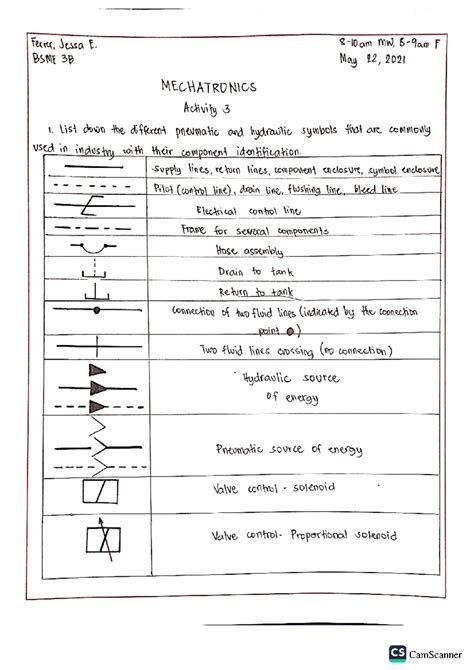 Ferrer, Jessa E.
8-10am MW, 8-9am F
BSME 3B
May 22, 2021
MECHATRONICS
Activity 3
1. List down the different pneumatic and hydraulic symbols that are commonly
used in industry with their component identification.
Supply lines, return lines, component enclosure, symbol enclosure
Pilot (control line), drain line, flushing line, bleed line
Electrical control line
Frame for several components
Hose assembly
Drain to tank
Return to tank
Connection of two fluid lines (indicated by the connection
point )
Two fluid lines crossing (no connection)
Hydraulic source
of energy
Pneumatic source of energy
Valve control - solenoid
Valve control- Proportional solenoid
CS CamScanner